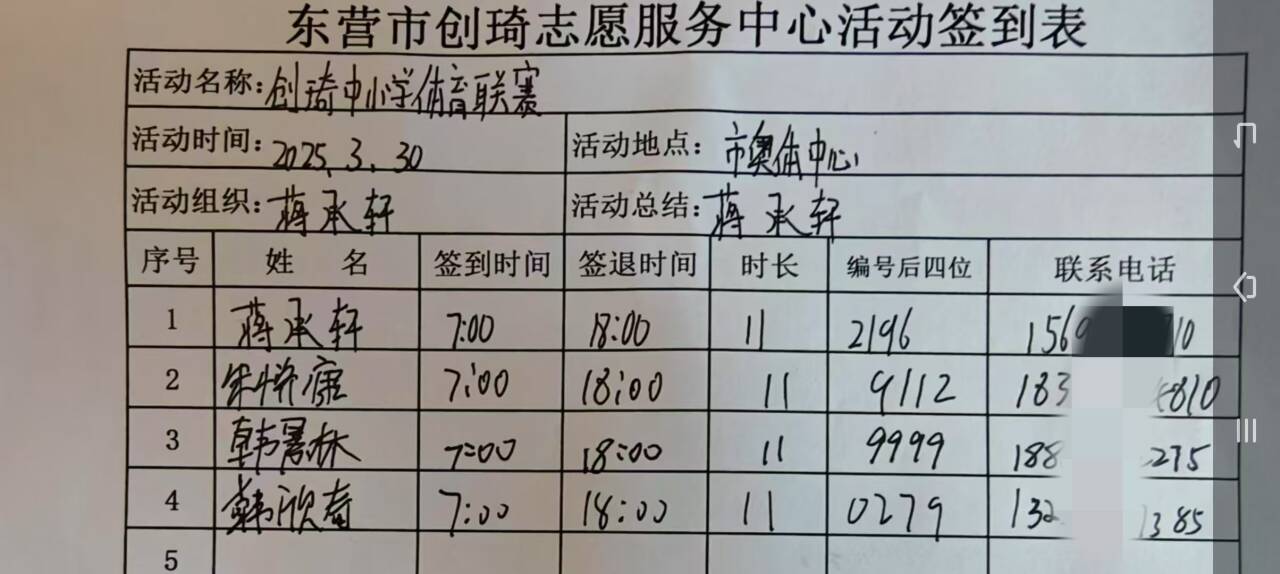 东营市创琦志愿服务中心活动签到表
活动名称:创琦中小学体育联赛
活动时间:2025.3.30 活动地点:市奥体中心
活动组织:蒋承轩 活动总结:蒋承轩
序号 姓名 签到时间 签退时间 时长 编号后四位 联系电话
1 蒋承轩 7:00 18:00 11 2196 156 10
2 7:00 18:00 11 9112 183 810
3 韩 林 7:00 18:00 11 9999 188 275
4 韩欣 7:00 18:00 11 0279 132 385
5